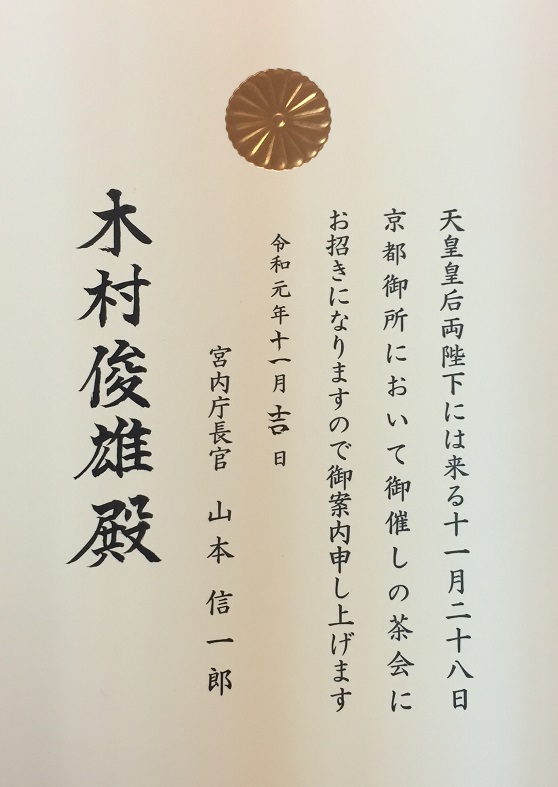 天皇皇后両陛下には来る十一月二十八日
京都御所において御催しの茶会に
お招きになりますので御案内申し上げます
令和元年十一月吉日
宮内庁長官 山本信一郎
木村俊雄殿